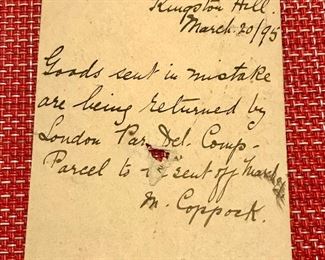 Kingston Hill
March 20/95
Goods sent in mistake
are being returned by
London Par. Del. Comp-
Parcel to be sent off March
M. Coppock.